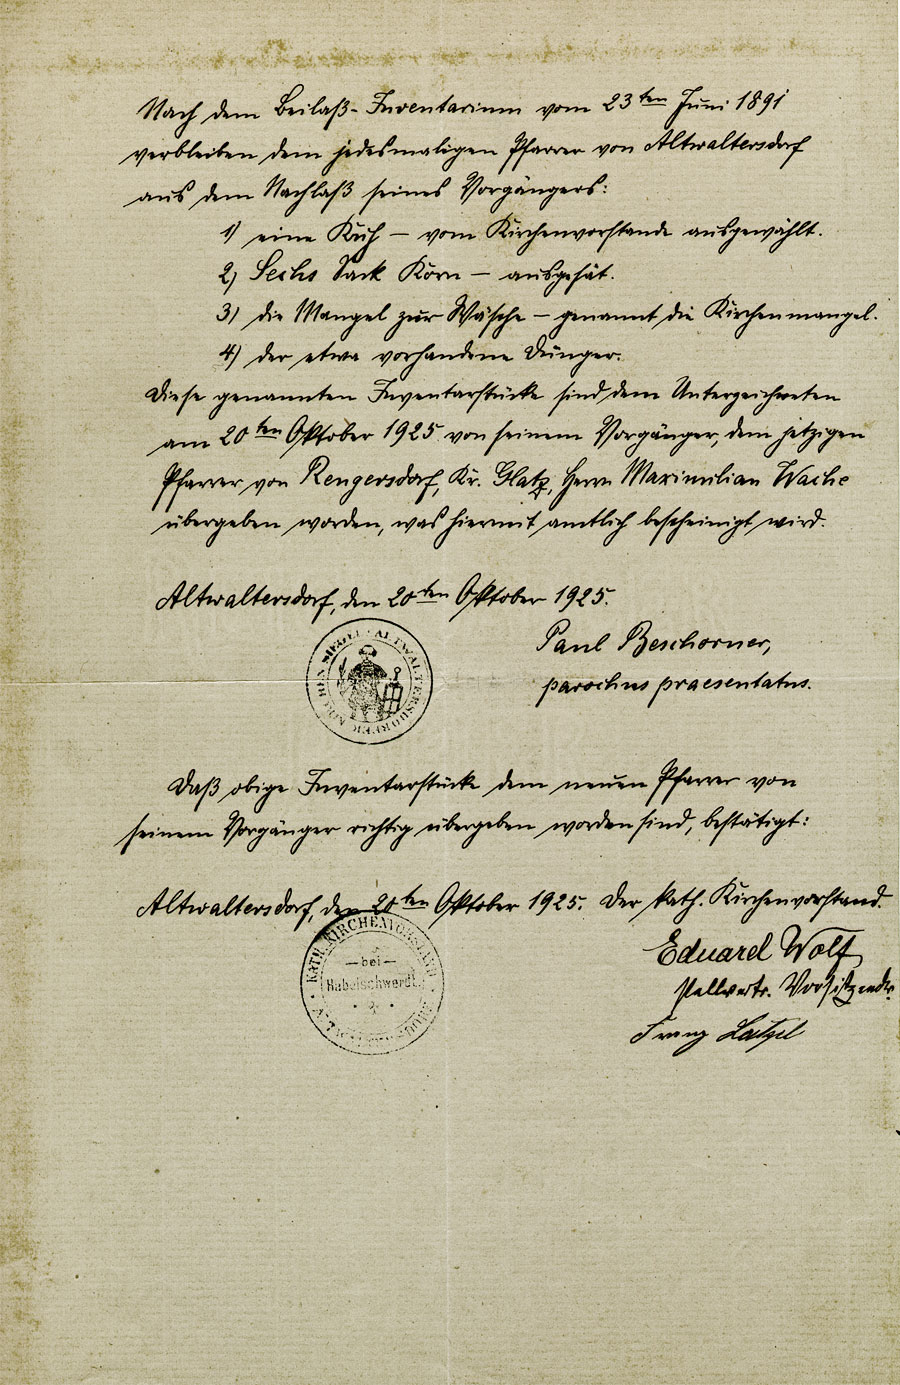 Nach dem Beilaß-Inventarium vom 23ten Juni 1891
verbleiben dem jedesmaligen Pfarrer von Altwaltersdorf
aus dem Nachlaß seines Vorgängers:
1) eine Kuh – vom Kirchenvorstande ausgewählt.
2) Sechs Sack Korn – ausgesät.
3) die Mangel zur Wäsche – genannt die Kirchenmangel.
4) der etwa vorhandene Dünger.
Diese genannten Inventarstücke sind dem Unterzeichneten
am 20ten Oktober 1925 von seinem Vorgänger, dem jetzigen
Pfarrer von Rengersdorf, Kr. Glatz, Herrn Maximilian Wache
übergeben worden, was hiermit amtlich bescheinigt wird.
Altwaltersdorf, den 20ten Oktober 1925.
Paul Beschorner,
parochus praesentatus.
KIRCHEN SIEGEL · ALTWALTERSDORFER
Daß obige Inventarstücke dem neuen Pfarrer von
seinem Vorgänger richtig übergeben worden sind, bestätigt:
Altwaltersdorf, den 20ten Oktober 1925. Der kath. Kirchenvorstand.
KATH. KIRCHENVORSTAND
– bei –
Habelschwerdt
Eduard Wolf
stellvertr. Vorsitzender
Franz Latzel